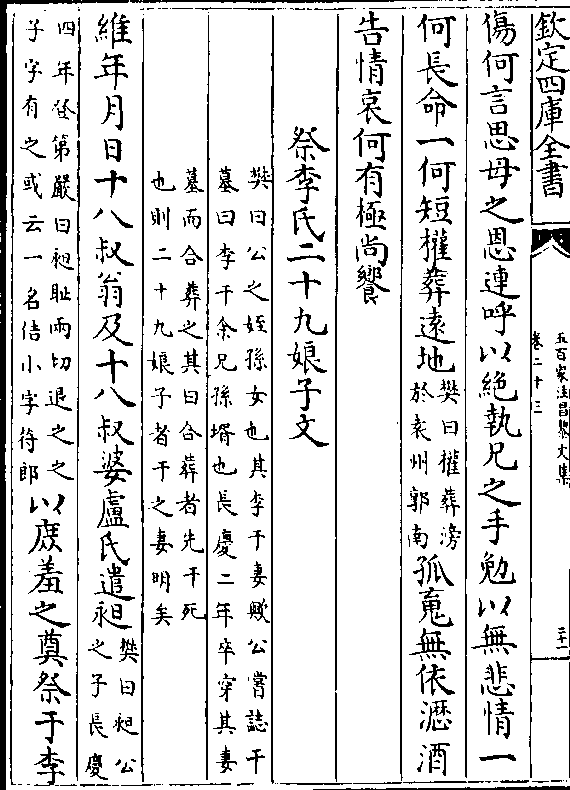 欽定四庫全書
五百家注昌黎文集
卷二十三
二十一
傷何言思母之恩連呼以絶執兄之手勉以無悲情一
何長命一何短權葬遠地樊曰權葬滂於袁州郭南孤䰟無依瀝酒
告情哀何有極尚饗
祭李氏二十九娘子文
樊曰公之姪孫女也其李干妻歟公嘗誌干
墓曰李干余兄孫壻也長慶二年卒穿其妻
墓而合葬之其曰合葬者先干死
也則二十九娘子者干之妻明矣
維年月日十八叔翁及十八叔婆盧氏遣昶樊曰昶公之子長慶
四年登第嚴曰昶耻兩切退之之子字有之或云一名佶小字符郎以庶羞之奠祭于李